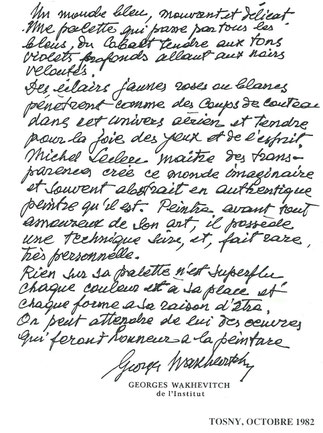 Un monde bleu, mouvant et délicat.
Une palette qui passe par tous les
bleus, du Cobalt tendre aux tons
violets profonds allant aux noirs
veloutés.
Des éclairs jaunes roses ou blancs
pénètrent comme des Coups de couteau
dans cet univers aérien et tendre
pour la joie des yeux et de l'esprit.
Michel Leclerc maître des trans-
parences crée ce monde imaginaire
et souvent abstrait en authentique
peintre qu'il est. Peintre avant tout
amoureux de son art, il possède
une technique sûre, et, fait rare,
très personnelle.
Rien sur sa palette n'est superflu
chaque couleur est à sa place et
chaque forme a sa raison d'être.
On peut attendre de lui des œuvres
qui feront honneur à la peinture
Georges Wakhevitch
GEORGES WAKHEVITCH
de l'Institut
TOSNY, OCTOBRE 1982